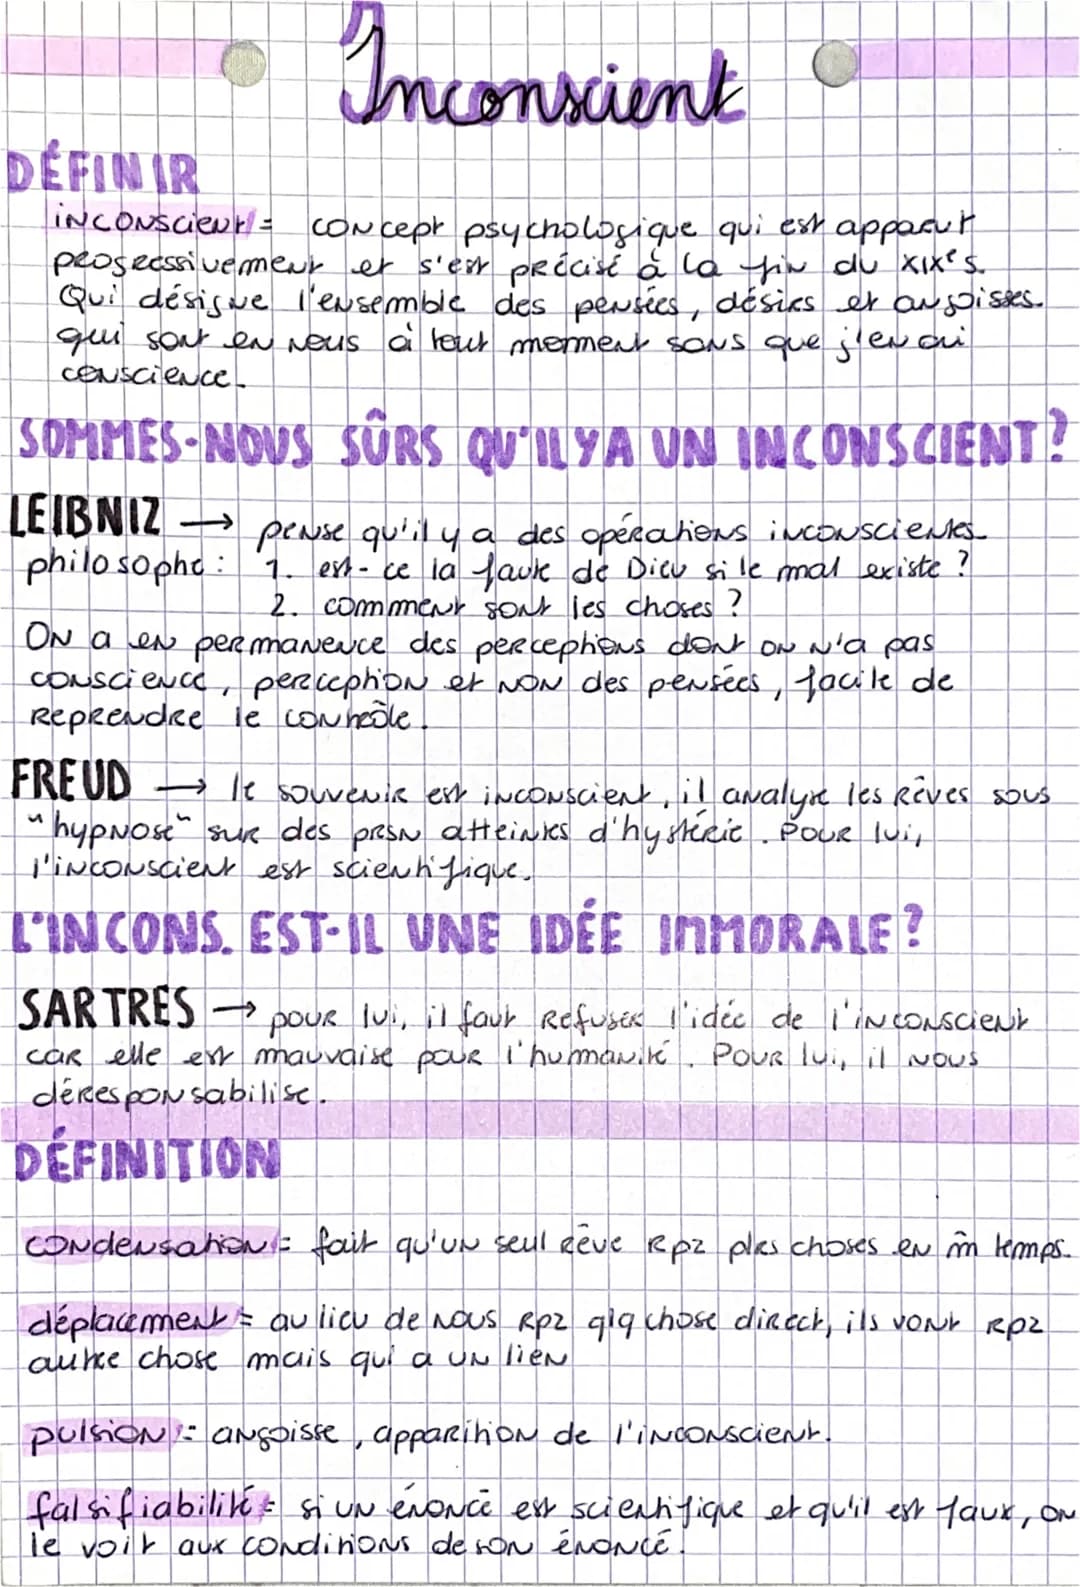 Inconscient
DÉFINIR
inconscient = concept psychologique qui est apparut
progressivement et s'est précisé à la fin du XIXe s.
Qui désigne l'ensemble des pensées, désirs et angoisses.
qui sont en nous à tout moment sans que j'en ai
conscience.
SOMMES-NOUS SÛRS QU'IL Y A UN INCONSCIENT?
LEIBNIZ → pense qu'il y a des opérations inconscientes
philosophe : 1. est-ce la faute de Dieu si le mal existe ?
2. comment sont les choses ?
On a en permanence des perceptions dont on n'a pas
conscience, perception et non des pensées, facile de
reprendre le contrôle.
FREUD → le souvenir est inconscient, il analyse les rêves sous
"hypnose" sur des prsn atteintes d'hystérie. Pour lui,
l'inconscient est scientifique.
L'INCONS. EST-IL UNE IDÉE IMMORALE?
SARTRES → pour lui, il faut refuser l'idée de l'inconscient
car elle est mauvaise pour l'humanité. Pour lui, il nous
déresponsabilise.
DÉFINITION
condensation = fait qu'un seul rêve rpz plrs choses en m̂ temps.
déplacement = au lieu de nous rpz qlq chose direct, ils vont rpz
autre chose mais qui a un lien
pulsion = angoisse, apparition de l'inconscient.
falsifiabilité = si un énoncé est scientifique et qu'il est faux, on
le voit aux conditions de son énoncé.